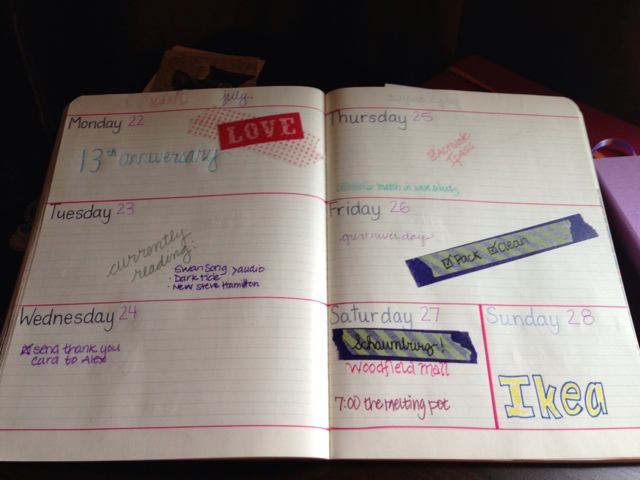 july
Monday 22
LOVE
13th anniversary
Tuesday 23
currently
reading:
Swan Song > audio
· Dark tide
· New Steve Hamilton
Wednesday 24
send thank you
card to Alex
Thursday 25
Friday 26
Pack Clean
Saturday 27
Schaumburg!
Woodfield Mall
7:00 the melting pot
Sunday 28
Ikea